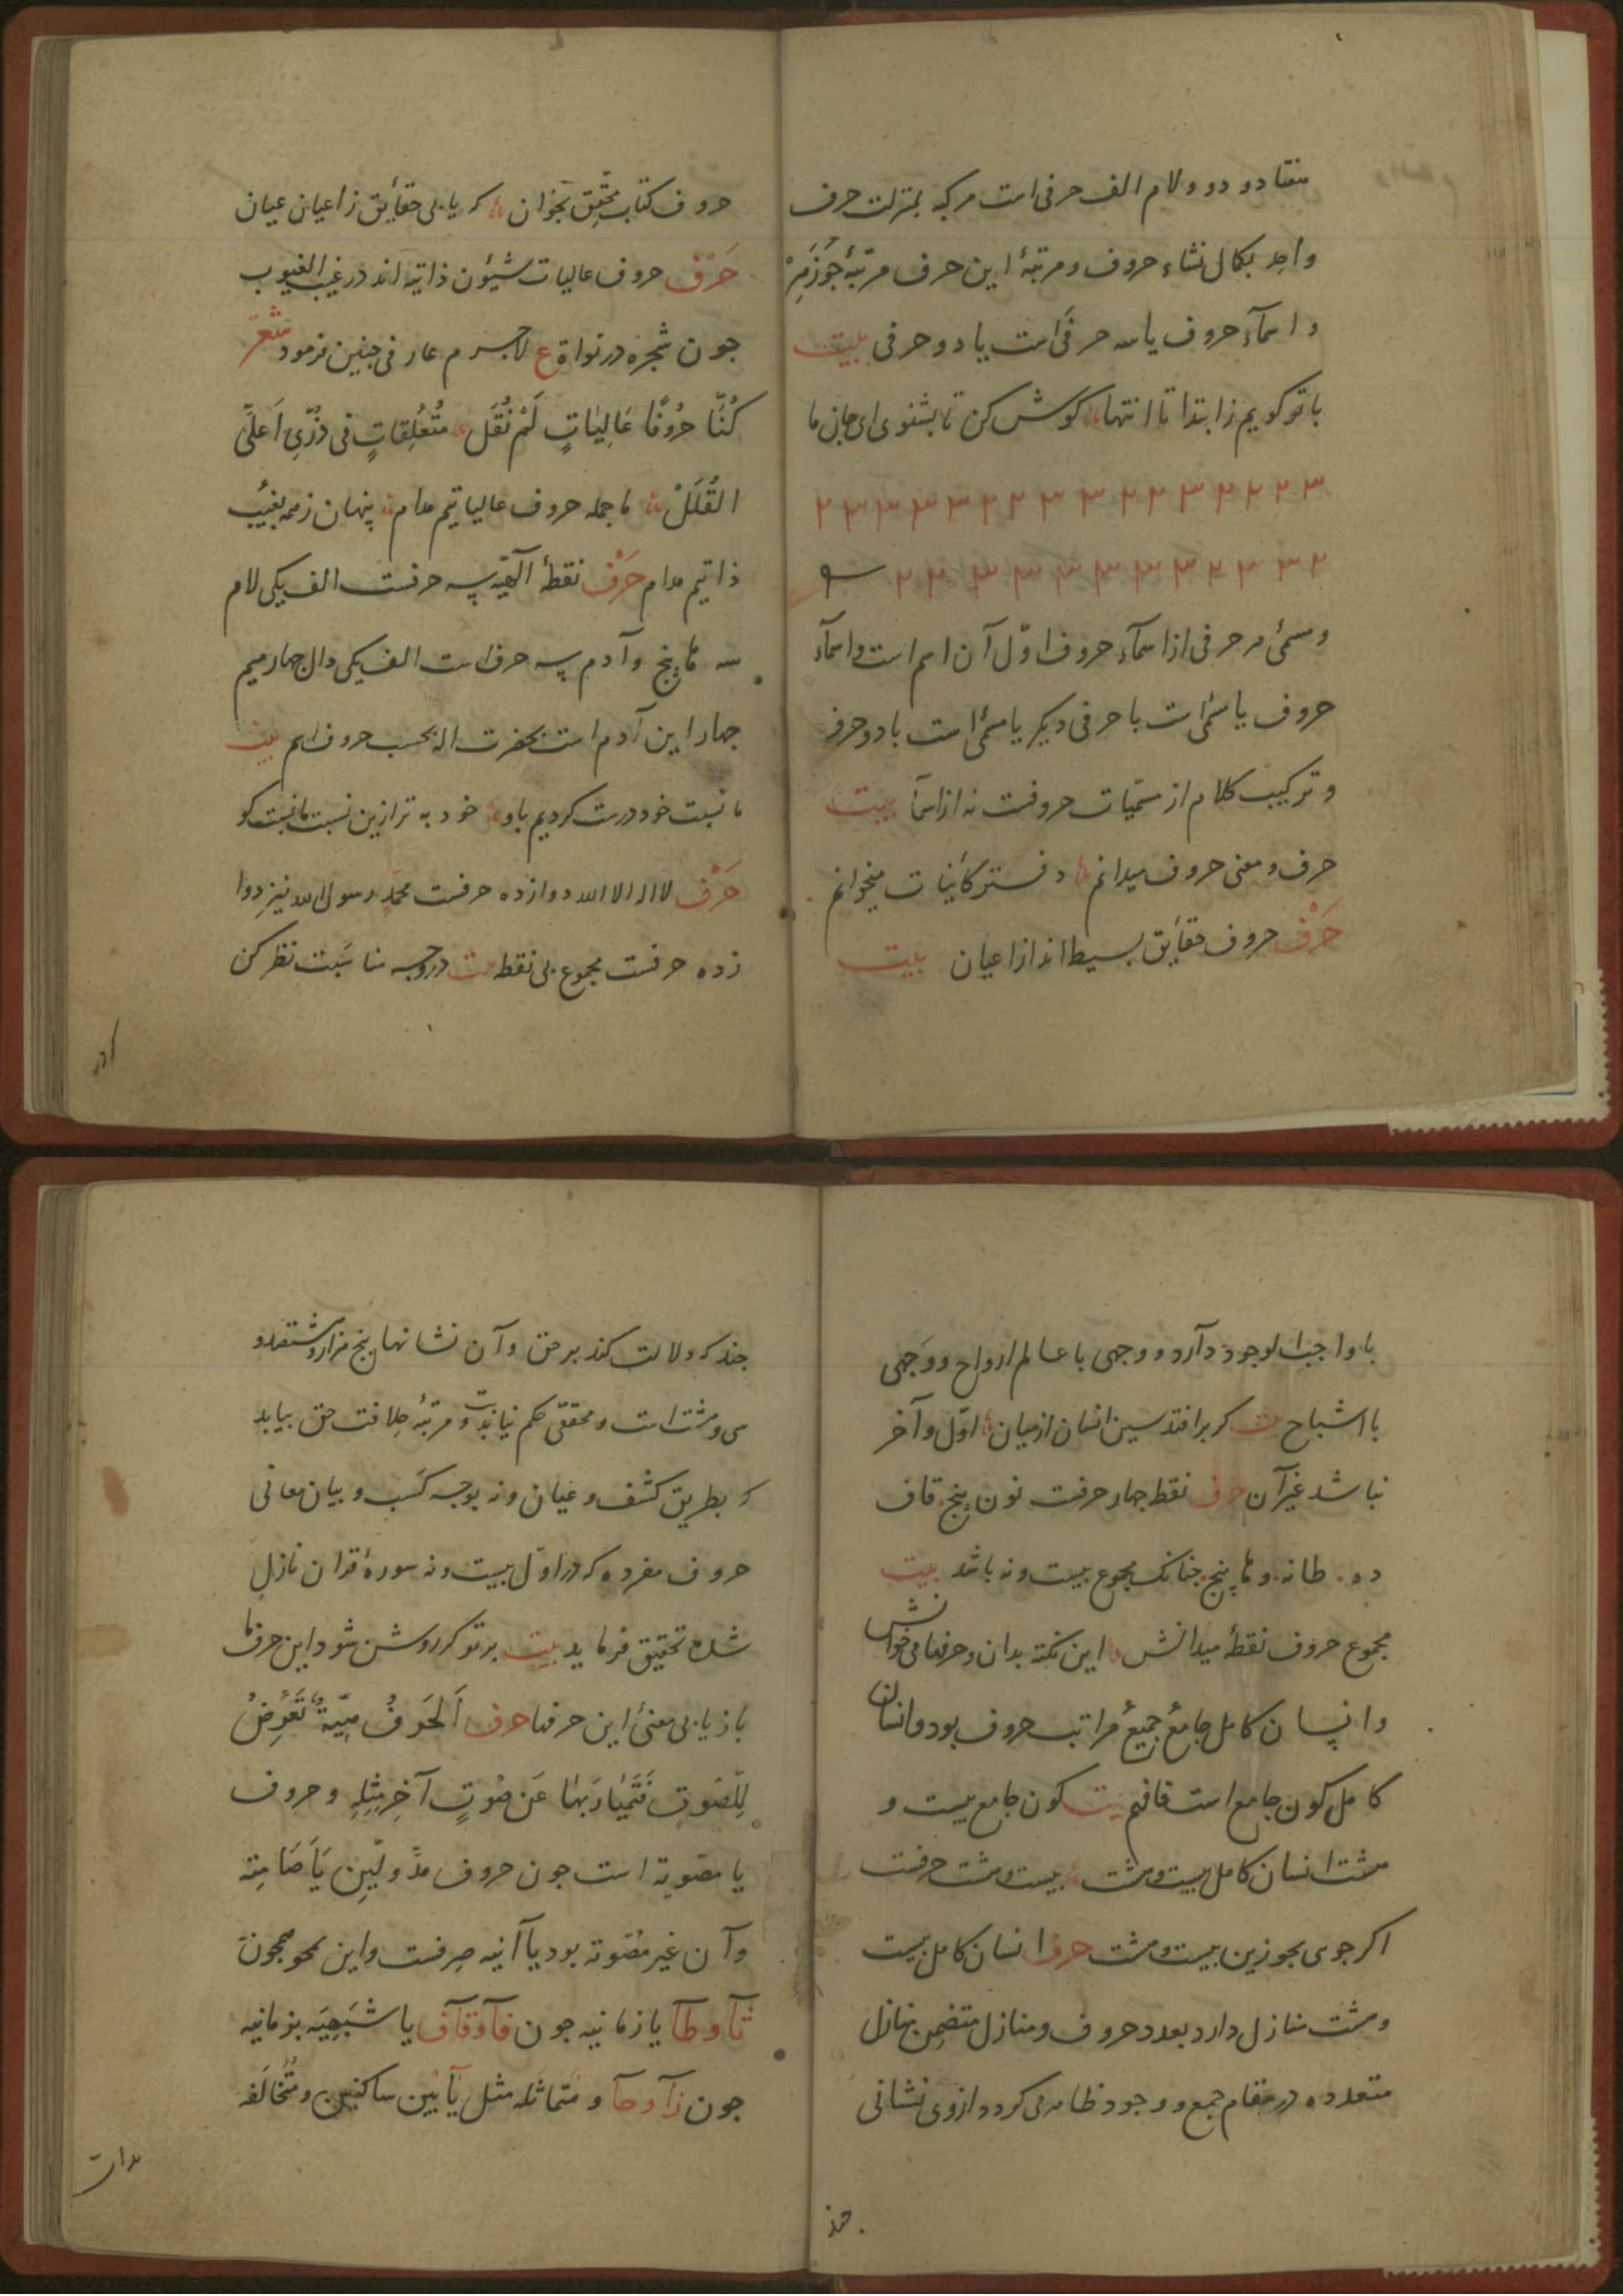 هفتاد و دو و لام الف حرفی است مرکبه بمنزلت حرف
واحد بکمال نشاء حروف و مرتبهٔ این حرف مرتبهٔ جوزهر
و اسمآء حروف یا سه حرفی است یا دو حرفی بیت
با تو کویم ز ابتدا تا انتها کوش کن تا بشنوی ای جان ما
۳ ۲ ۲ ۲ ۳ ۲ ۲ ۳ ۳ ۲ ۲ ۳ ۳ ۳ ۳ ۲
۲ ۳ ۳ ۲ ۳ ۳ ۳ ۳ ۳ ۳ ۲ ۲
و مسمیٔ هر حرفی از اسمآء حروف اوّل آن اسم است و اسمآء
حروف یا مسمّی است با حرفی دیکر یا مسمیّ است با دو حرف
و ترکیب کلام از مسمّیات حروفست نه از اسمآ بیت
حرف و معنی حروف میدانم دفتر کائنات میخوانم
حَرْف حروف حقایق بسیطه اند از اعیان بیت
حروف کتاب محقّق بخوان که یابی حقایق ز اعیان عیان
حَرْف حروف عالیات شیٔون ذاتیه اند در غیب الغیوب
جون شجره در نواة ع لاجرم عارفی جنین فرمود شعر
کُنّا حرُوفًا عَالِیٰاتٍ لَمْ نُقَل مُتُعَلِقاتٍ فی ذُرّیِ اَعلَیَّ
القُلَلْ ما جمله حروف عالیاتیم مدام پنهان ز همه بغیب
ذاتیم مدام حَرْف نقطهٔ آلهیّه سه حرفست الف یکی لام
سه ها پنج و آدم سه حرف است الف یکی دال جهار میم
جهار این آدم است بحضرت اله بحسب حروف اسم بیت
ما نسبت خود درست کردیم باو خود به تر ازین نسبت ما نیست کو
حَرْف لا اله الا الله دوازده حرفست محمّدٍ رسول الله نیز دوا
زده حرفست مجموع بی نقطه بیت در وجه مناسَبت نظر کن
با واجب الوجود دآرد و وجهی با عالم ارواح و وَجهی
با اشباح بیت کر برافتد سین انسان از میان اوّل و آخر
نباشد غیر آن حرف نقطه جهار حرفست نون پنج قاف
ده طا نه و ها پنج جنانک مجموع بیست و نه باشد بیت
مجموع حروف نقطهٔ میدانش این نکته بدان و حرفها می خوانش
و انسان کامل جامعٔ جمیعٔ مراتب حروف بود و انسان
کامل کون جامع است فافهم بیت کون جامع بیست و
هشت انسان کامل بیست و هشت بیست و هشت حرفست
اکر جوی بجو زین بیست و هشت حرف انسان کامل بیست
و هشت منازل دارد بعدد حروف و منازل متضمن بمنازل
متعدده در مقام جمع و وجود ظاهر می کردد از وی نشانی
جند که دلالت کند بر حق و آن نشانها پنج هزار و ششصد و
سی و هشت است و محققی حکم نیابت و مرتبهٔ خلافت حق بیابد
که بطریق کشف و عیان و نه بوجه کسَب و بیان معانی
حروف مفرده که در اوّل بیست و نه سورهٔ قران نازل
شده تحقیق فرماید بیت بر تو کر روشن شود این حرفها
باز یابی معنیٔ این حرفها حرف اَلحَرفُ هیّةٌ تَعْرِضُ
لِلّصَوتِ فَتَمیٰازَ بهٰا عَن صَوتٍ آخِر مِثلِهِ و حروف
یا مصّوته است جون حروف مدّ و لیٖن یا صَامِته
و آن غیر مُصّوته بود یا آنیه صِرفست و این همجون
تآ و طآ یا زمانیه جون فآ و قآف یا شبیَهیَه بزمانیه
جون زآ و حآ و متماثله مثل یَآیٖن ساکنین و مُتخالفَه